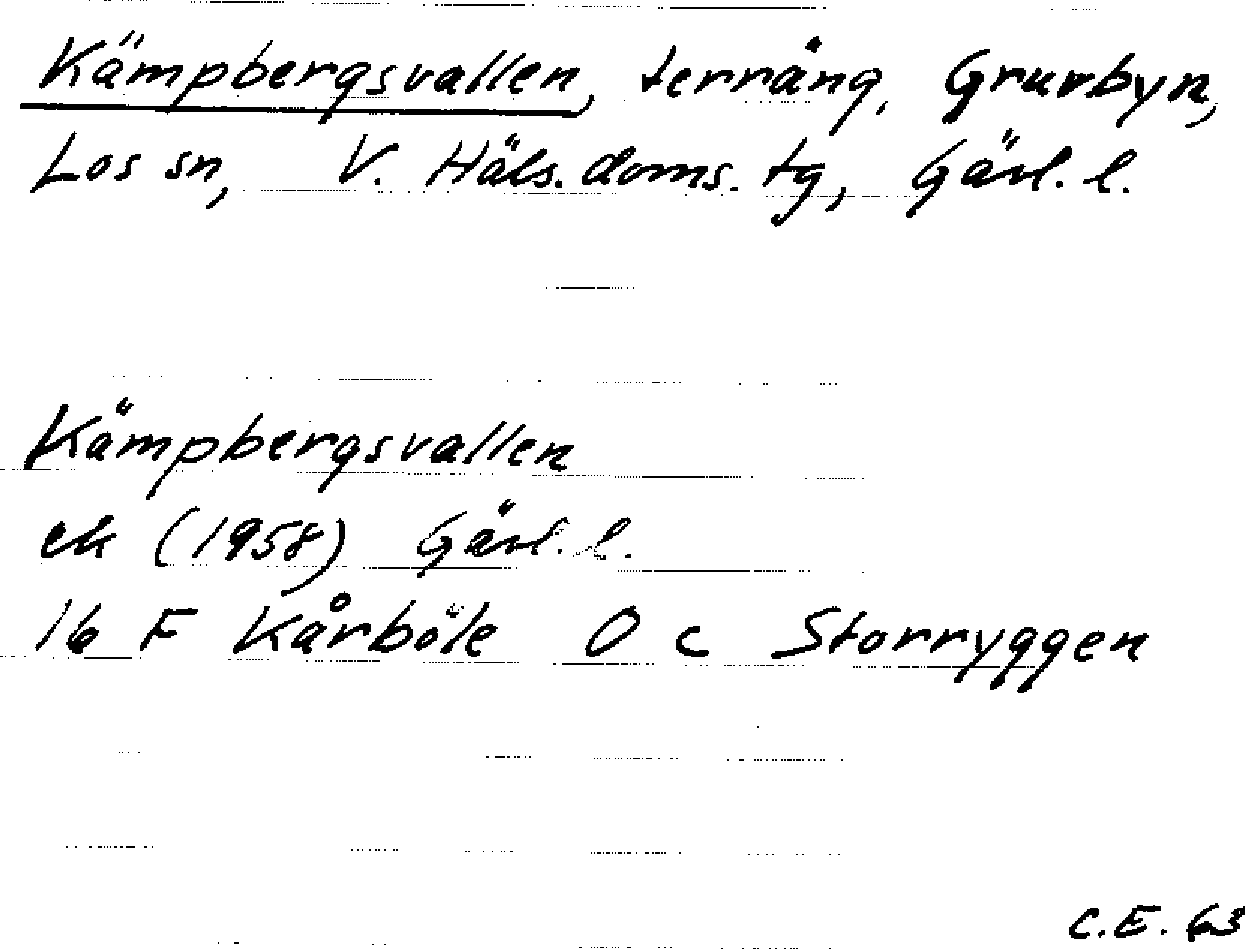 Kämpbergsvallen, terräng, Gruvbyn,
Los sn, V. Häls. doms. tg, Gävl. l.
Kämpbergsvallen
ek (1958) Gävl. l.
16 F Kårböle O c Storryggen
C.E. 63